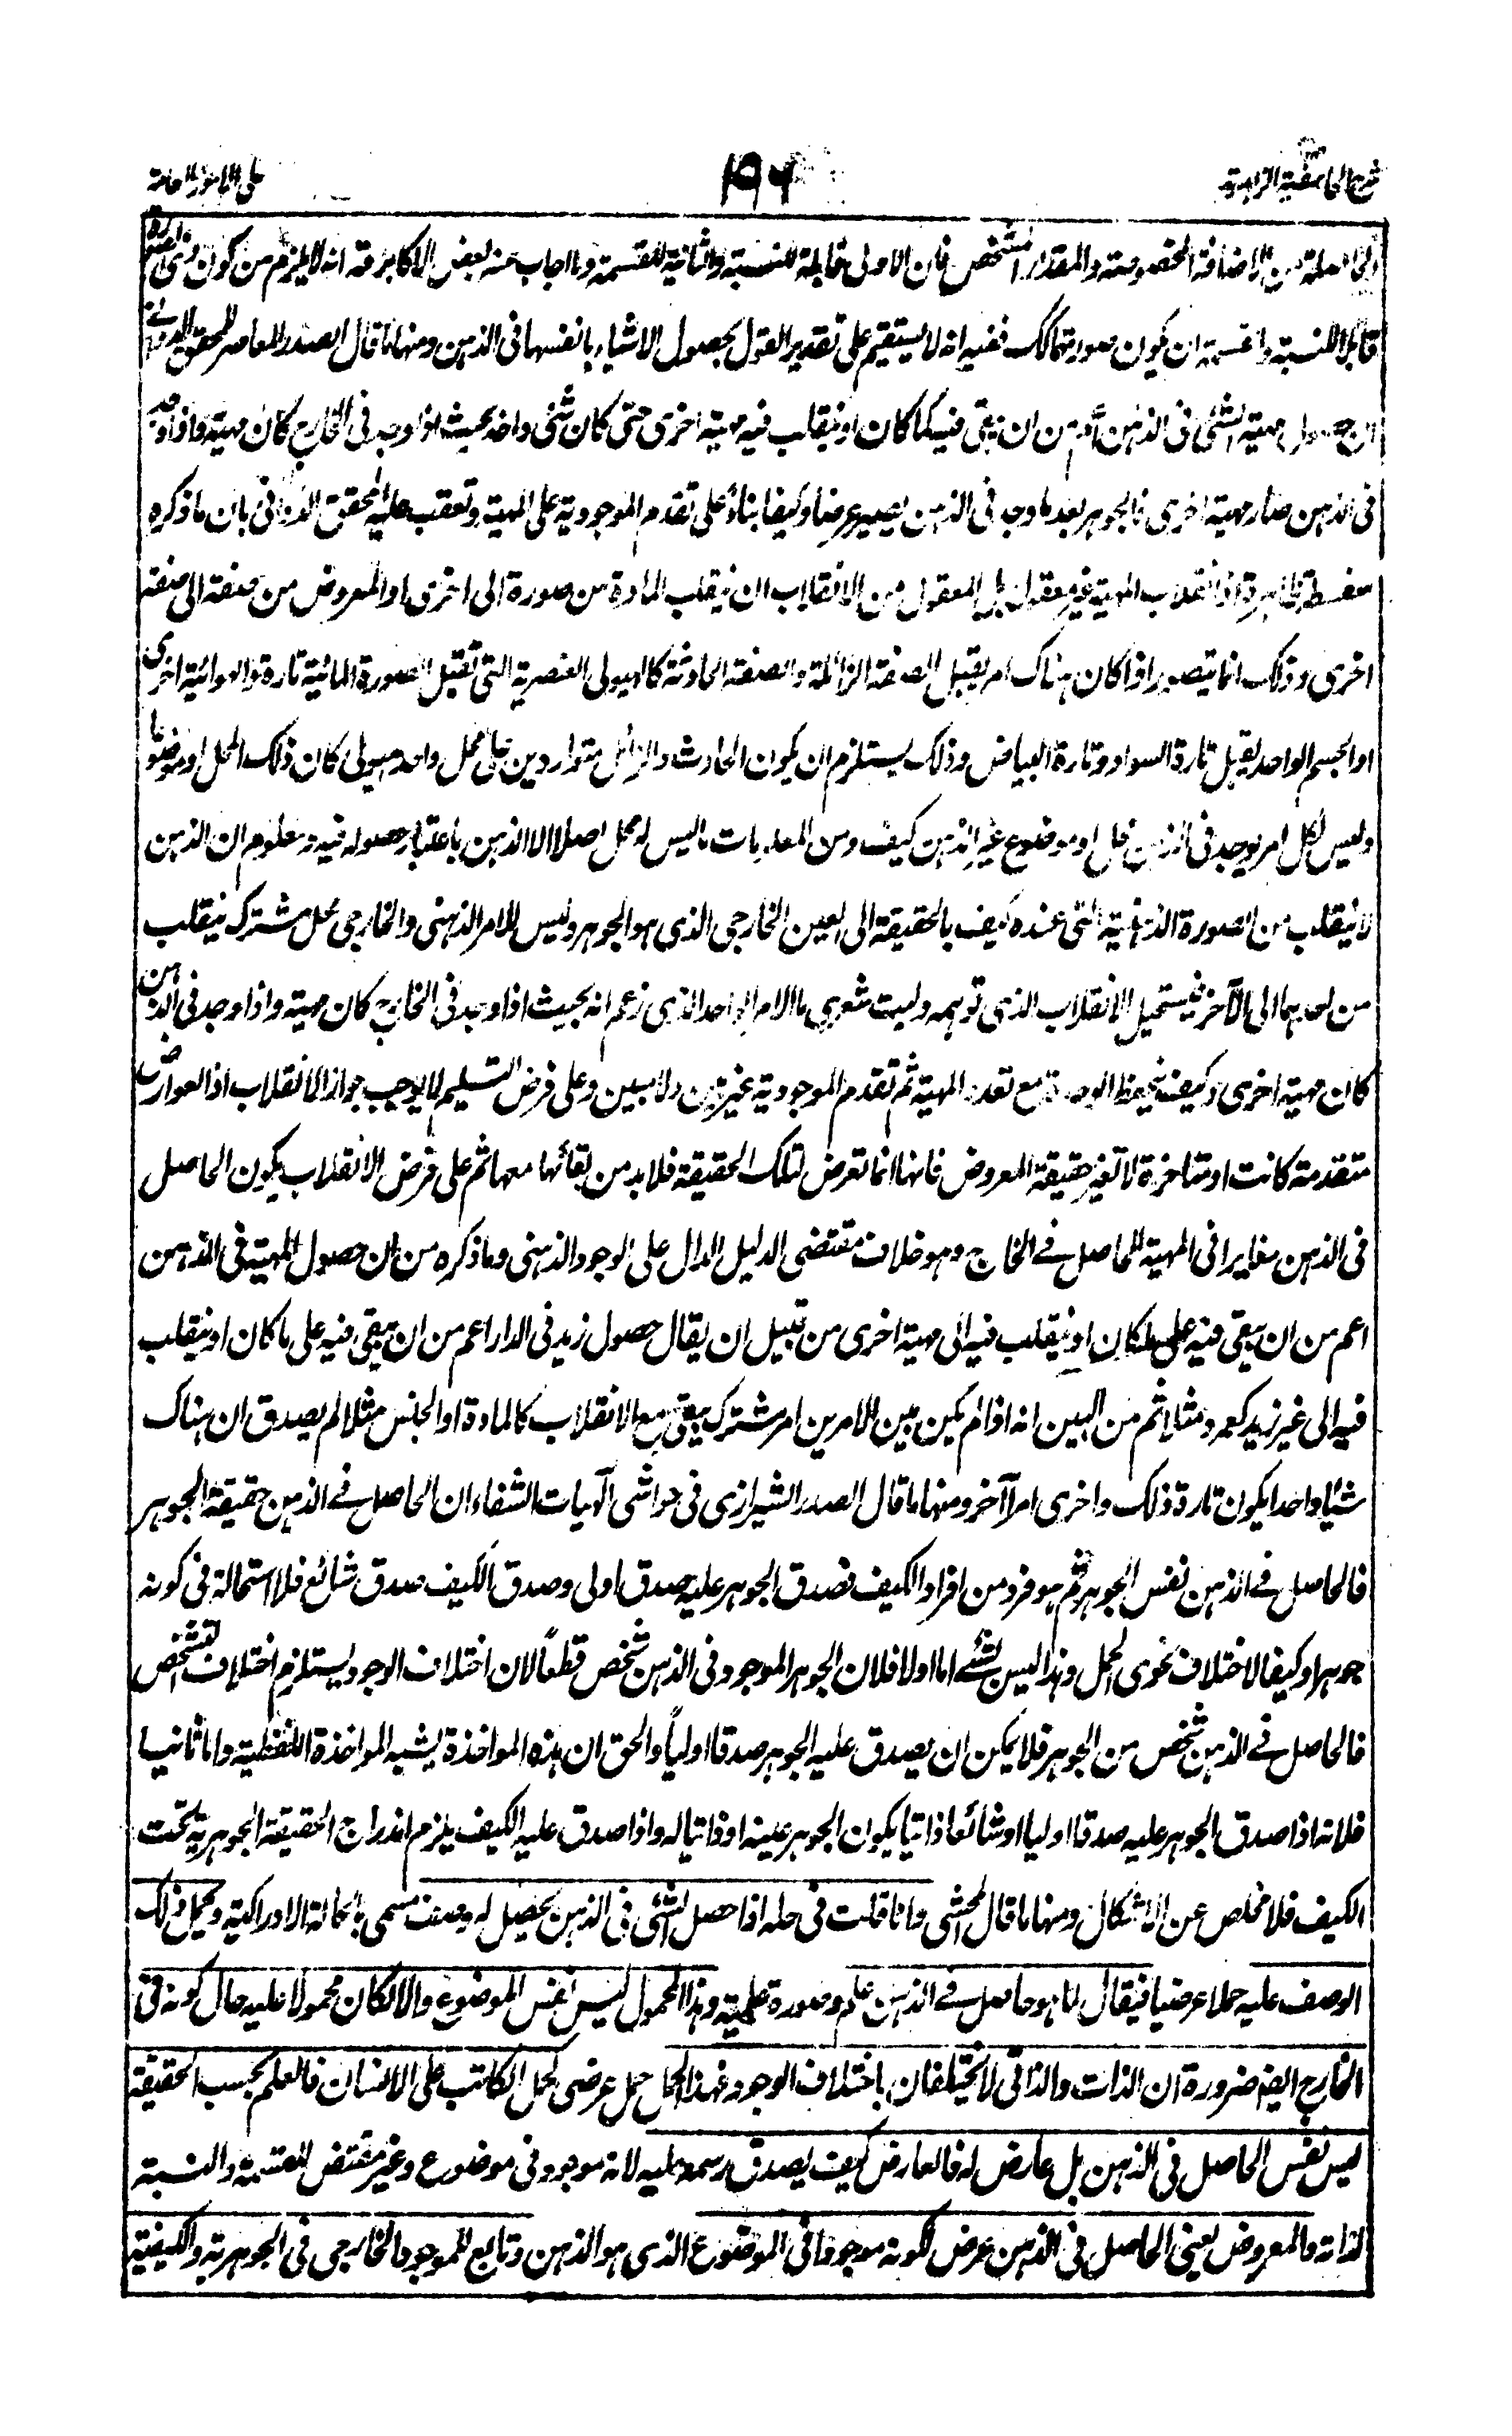 شرح الحاشية الزاهدية
١٥٦
على الامور العامة
الحاصلة من الاضافة المخصوصة والمقدار المتشخص فان الاولى قابلة للنسبة والثانية للقسمة وما اجاب عنه بعض الاكابر قه انه لا يلزم من كون ذى الصورة
قابلا للنسبة والقسمة ان يكون صورتها كك ففيه انه لا يستقيم على تقدير القول بحصول الاشياء بانفسها فى الذهن ومنها ما قال الصدر المعاصر للمحقق الدوانى
ان حصول مهية الشئ فى الذهن اعم من ان يبقى فيه كما كان او ينقلب فيه مهية اخرى حتى كان شئ واحد بحيث اذا وجد فى الخارج كان مهية واذا وجد
فى الذهن صار مهية اخرى فالجوهر بعد ما وجد فى الذهن يصير عرضا وكيفا بناءً على تقدم الموجودية على المهية وتعقب عليه المحقق الدوانى بان ما ذكره
سفسطة ظاهرة اذ انقلاب المهية غير معقول بل المعقول من الانقلاب ان ينقلب المادة من صورة الى اخرى او المعروض من صفة الى صفة
اخرى وذلك انما يتصور اذا كان هناك امر يقبل الصفة الزائلة والصفة الحادثة كالهيولى العنصرية التى تقبل الصورة المائية تارة والهوائية اخرى
او الجسم الواحد يقبل تارة السواد وتارة البياض وذلك يستلزم ان يكون الحادث والزائل متواردين على محل واحد هيولى كان ذلك المحل او موضوعا
وليس لكل امر يوجد فى الذهن محل او موضوع غير الذهن كيف ومن المعدومات ما ليس له محل اصلا الا الذهن باعتبار حصوله فيه ومعلوم ان الذهن
لا ينقلب من الصورة الذهنية التى عنده كيف بالحقيقة الى العين الخارجى الذى هو الجوهر وليس للامر الذهنى والخارجى محل مشترك ينقلب
من احدهما الى الآخر فيستحيل الانقلاب الذى توهمه وليت شعرى ما الامر الواحد الذى زعم انه بحيث اذا وجد فى الخارج كان مهية واذا وجد فى الذهن
كان مهية اخرى وكيف ينحفظ الوحدة مع تعدد المهية ثم تقدم الموجودية غير بين ولا مبين وعلى فرض التسليم لا يوجب جواز الانقلاب اذ العوارض
متقدمة كانت او متاخرة لا تغير حقيقة المعروض فانها انما تعرض لتلك الحقيقة فلا بد من بقائها معها ثم على فرض الانقلاب يكون الحاصل
فى الذهن مغايرا فى المهية للحاصل فے الخارج وهو خلاف مقتضى الدليل الدال على الوجود الذهنى وما ذكره من ان حصول المهية فى الذهن
اعم من ان يبقى فيه على ما كان او ينقلب فيه الى مهية اخرى من قبيل ان يقال حصول زيد فى الدار اعم من ان يبقى فيه على ما كان او ينقلب
فيه الى غير زيد كعمرو مثلا ثم من البين انه اذا لم يكن بين الامرين امر مشترك يبقى مع الانقلاب كالمادة او الجنس مثلا لم يصدق ان هناك
شئيا واحدا يكون تارة ذلك واخرى امرا آخر ومنها ما قال الصدر الشيرازى فى حواشى آلهيات الشفاء ان الحاصل فے الذهن حقيقة الجوهر
فالحاصل فے الذهن نفس الجوهر ثم هو فرد من افراد الكيف فصدق الجوهر عليه صدق اولى وصدق الكيف صدق شائع فلا استحالة فى كونه
جوهرا وكيفا لاختلاف نحوى الحمل وهذا ليس بشئے اما اولا فلان الجوهر الموجود فى الذهن شخص قطعًا لان اختلاف الوجود يستلزم اختلاف التشخص
فالحاصل فے الذهن شخص من الجوهر فلا يمكن ان يصدق عليه الجوهر صدقا اولياً والحق ان هذه المواخذة يشبه المواخذة اللفظية واما ثانيا
فلانه اذا صدق الجوهر عليه صدقا اوليا او شائعا ذاتيا يكون الجوهر عينه او ذاتيا له واذا صدق عليه الكيف يلزم اندراج الحقيقة الجوهرية تحت
الكيف فلا مخلص عن الاشكال ومنها ما قال المحشى وانا قلت فى حله اذا حصل الشئى فى الذهن يحصل له وصف مسمى بالحالة الادراكية ويحمل ذلك
الوصف عليه حملا عرضيا فيقال لما هو حاصل فے الذهن علم وصورة علمية وهذا المحمول ليس نفس الموضوع والا لكان محمولا عليه حال كونه فى
الخارج ايضا ضرورة ان الذات والذاتى لا يختلفان باختلاف الوجود فهذا الحمل حمل عرضى كحمل الكاتب على الانسان فالعلم بحسب الحقيقة
ليس نفس الحاصل فى الذهن بل عارض له فالعارض كيف يصدق رسمه عليه لانه موجود فى موضوع وغير مقتض للقسمة والنسبة
لذاته والمعروض يعنى الحاصل فى الذهن عرض لكونه موجودا فى الموضوع الذى هو الذهن وتابع للموجود الخارجى فى الجوهرية والكيفية